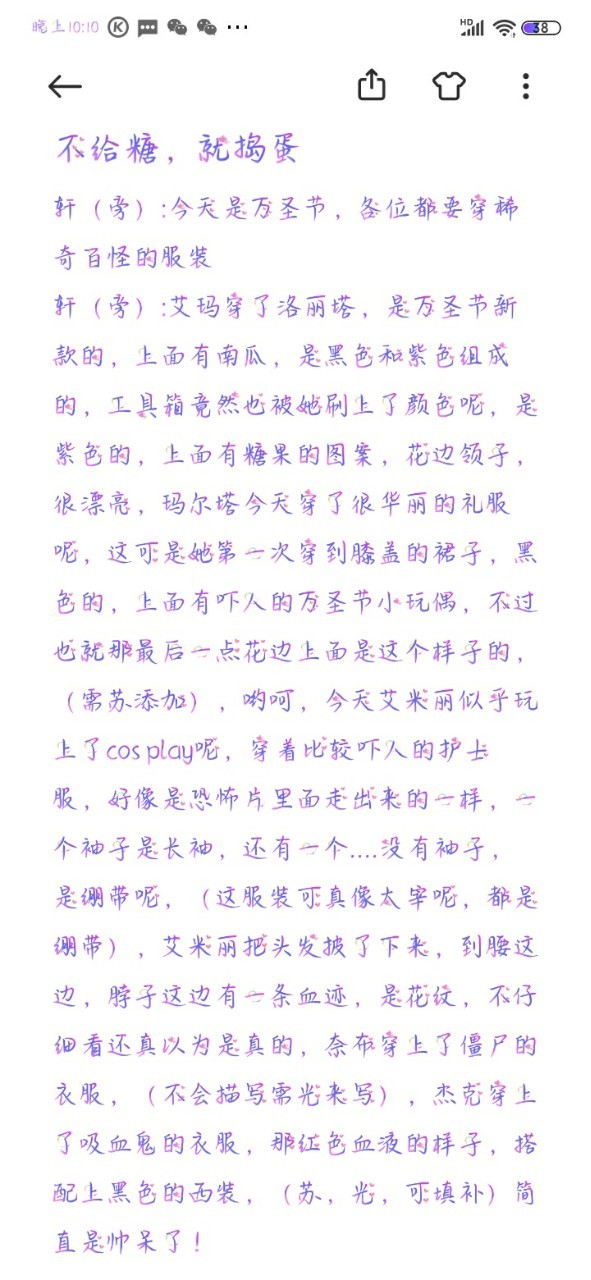 晚上10:10 K ... HD 38
不给糖，就捣蛋
轩（旁）:今天是万圣节，各位都要穿稀
奇百怪的服装
轩（旁）:艾玛穿了洛丽塔，是万圣节新
款的，上面有南瓜，是黑色和紫色组成
的，工具箱竟然也被她刷上了颜色呢，是
紫色的，上面有糖果的图案，花边领子，
很漂亮，玛尔塔今天穿了很华丽的礼服
呢，这可是她第一次穿到膝盖的裙子，黑
色的，上面有吓人的万圣节小玩偶，不过
也就那最后一点花边上面是这个样子的，
（需苏添加），哟呵，今天艾米丽似乎玩
上了cos play呢，穿着比较吓人的护士
服，好像是恐怖片里面走出来的一样，一
个袖子是长袖，还有一个....没有袖子，
是绷带呢，（这服装可真像太宰呢，都是
绷带），艾米丽把头发披了下来，到腰这
边，脖子这边有一条血迹，是花纹，不仔
细看还真以为是真的，奈布穿上了僵尸的
衣服，（不会描写需光来写），杰克穿上
了吸血鬼的衣服，那红色血液的样子，搭
配上黑色的西装，（苏，光，可填补）简
直是帅呆了！